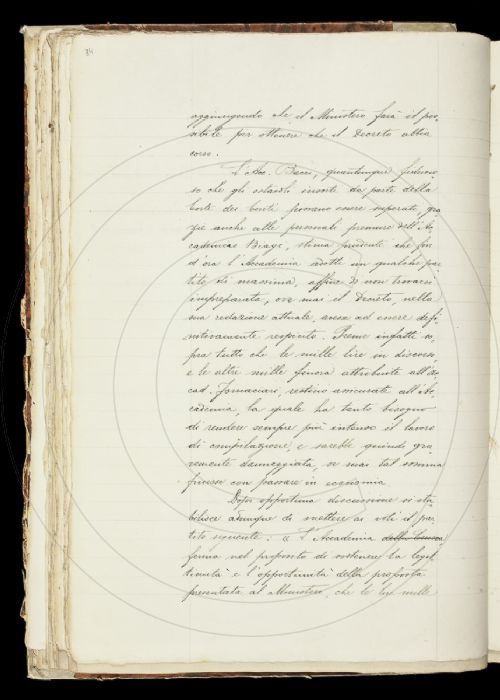 34
aggiungendo che il Ministero farà il pos-
sibile per ottenere che il Decreto abbia
corso.
L'Acc. Bacci, quantunque fiducio-
so che gli ostacoli insorti da parte della
Corte dei Conti possano essere superati, gra-
zie anche alle personali premure dell'Ac-
cademico Biagi, stima prudente che fin
d'ora l'Accademia adotti un qualche par-
tito di massima, affine di non trovarsi
impreparata, ove mai il Decreto, nella
sua redazione attuale, avesse ad essere defi-
nitivamente respinto. Preme infatti so-
pra tutto che le mille lire in discorso,
e le altre mille finora attribuite all'Ac-
cad. Fornaciari, restino assicurate all'Ac-
cademia, la quale ha tanto bisogno
di rendere sempre più intenso il lavoro
di compilazione, e sarebbe quindi gra-
vemente danneggiata, se mai tal somma
finisse con passare in economia.
Dopo opportuna discussione si sta-
bilisce adunque di mettere ai voti il par-
tito seguente: « L'Accademia della Crusca
ferma nel proposito di sostenere la legit-
timità e l'opportunità della proposta
presentata al Ministero, che le lire mille